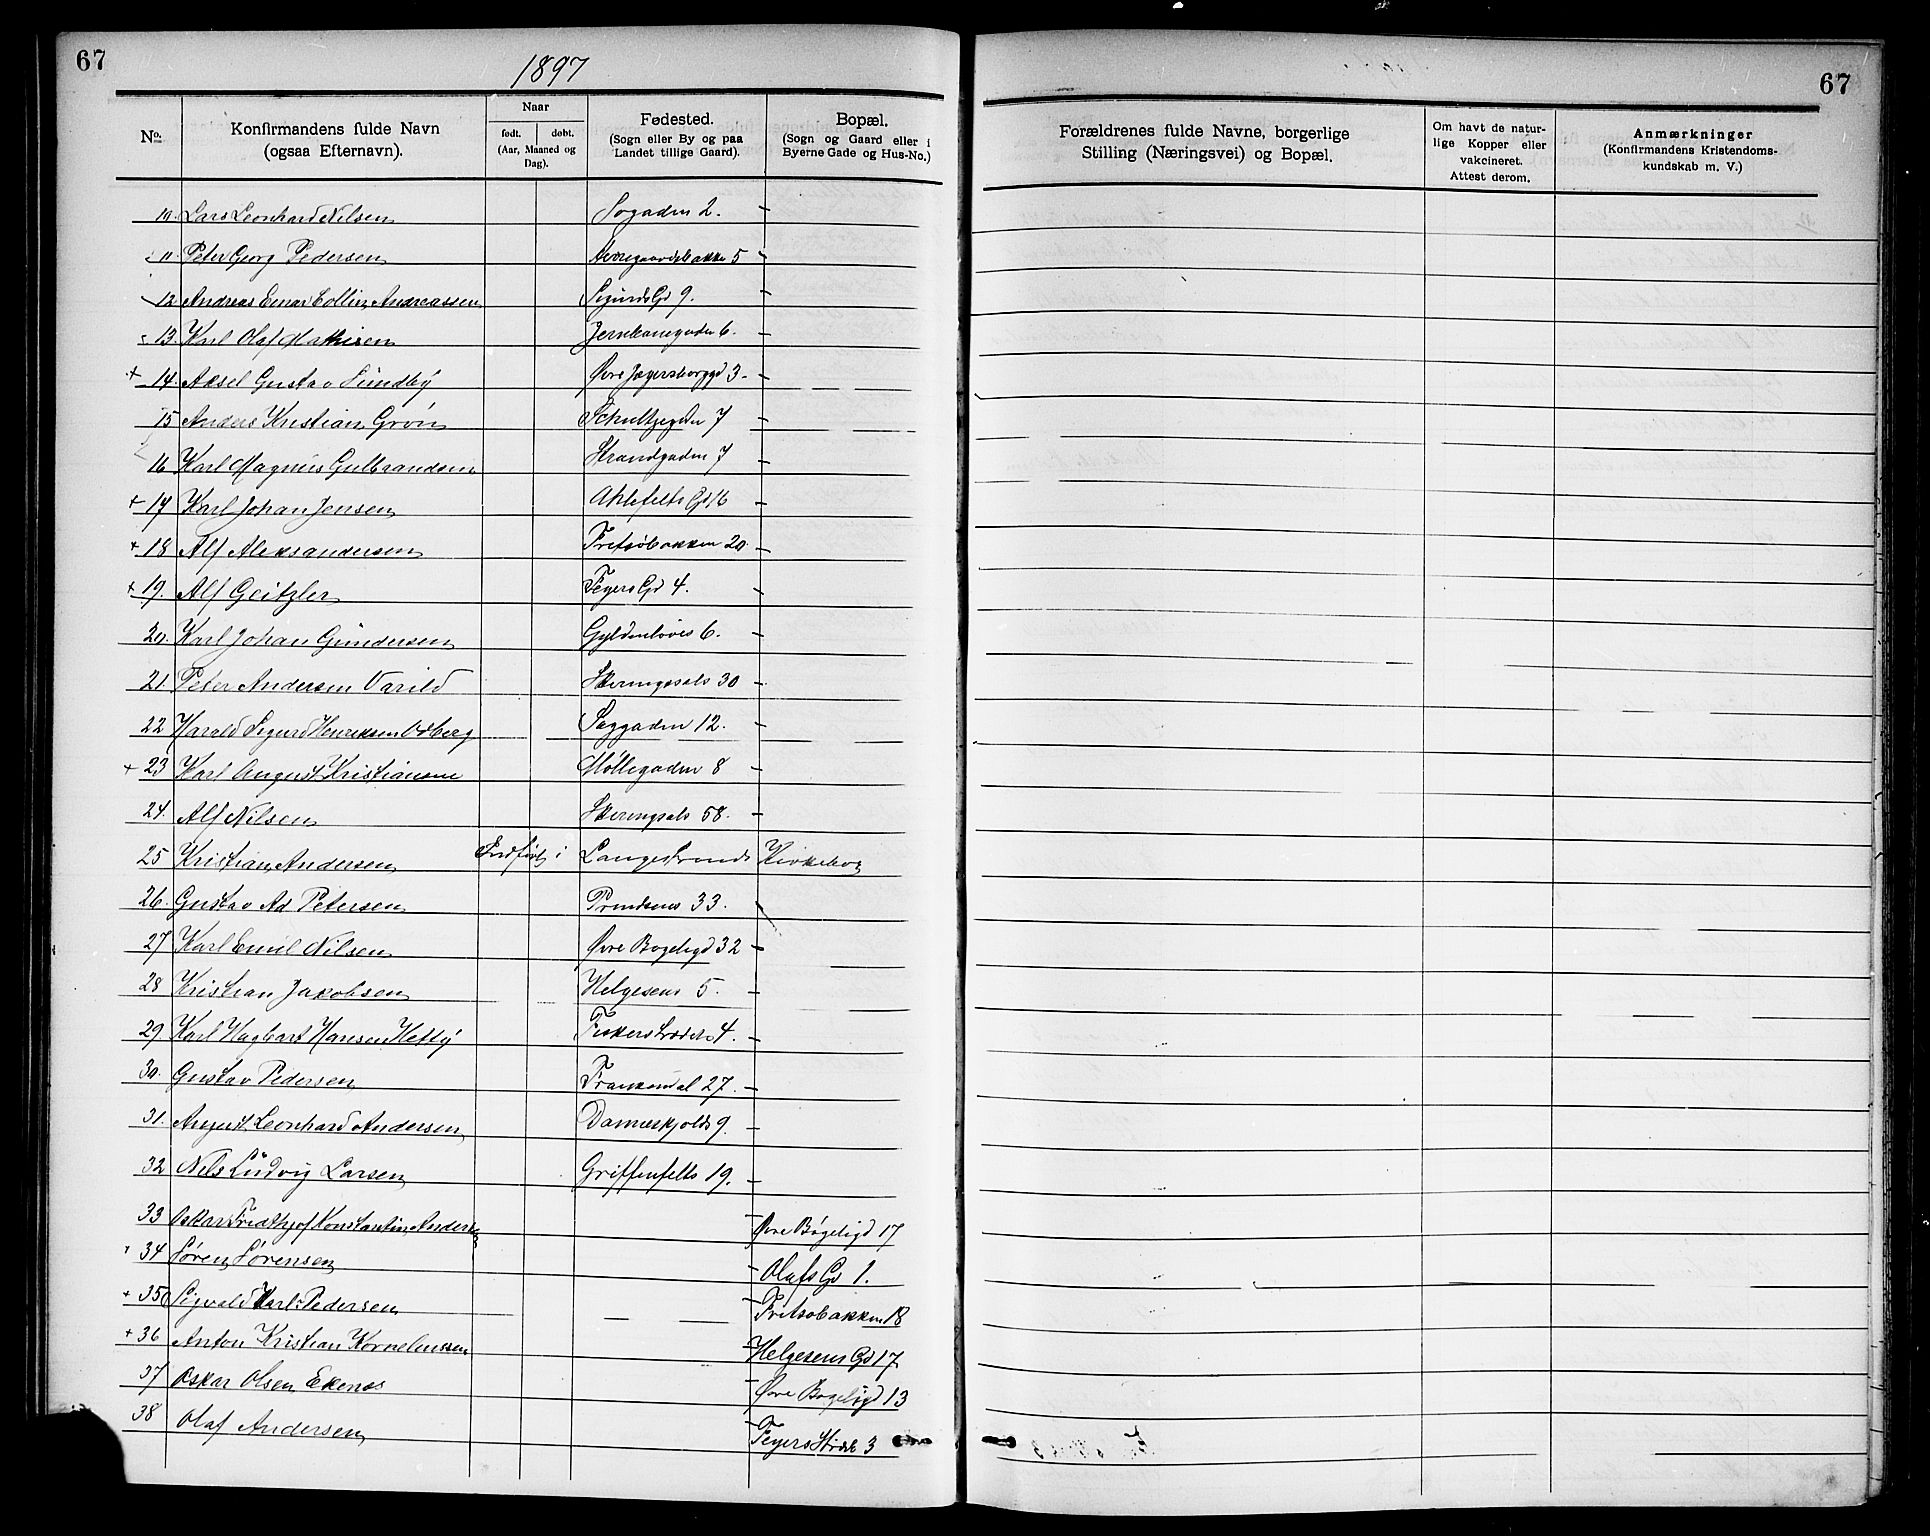 67
1897
67
No.
Konfirmandens fulde Navn
(ogsaa Efternavn).
Naar
født. døbt.
(Aar, Maaned og
Dag).
Fødested.
(Sogn eller By og paa
Landet tillige Gaard).
Bopæl.
(Sogn og Gaard eller i
Byerne Gade og Hus-No.)
Forældrenes fulde Navne, borgerlige
Stilling (Næringsvei) og Bopæl.
Om havt de natur-
lige Kopper eller
vakcineret.
Attest derom.
Anmærkninger
(Konfirmandens Kristendoms-
kundskab m. V.)
10 Lars Leonhard Nilsen Sogaden 2. —
11. Peter Georg Pedersen 5 —
12 Andreas Einar Collin Andreassen Sigurds Gd 9. —
13. Karl Olaf Mathisen Jernbanegaden 6. —
+ 14. Aksel Gustav Sundby Øvre Jegersborggd 3. —
15 Anders Kristian Grøn Schultzegden 7 —
16 Karl Magnus Gulbrandsen Strandgaden 7 —
+ 17 Karl Johan Jensen Ahlefelts Gd 16 —
+ 18 Alf Aleksandersen Fritsøbakken 20. —
+ 19. Alf Geitzler Feyers Gd 4. —
20. Karl Johan Gundersen Gyldenløves 6. —
21 Peter Andersen Varild Skeringssals 30 —
22 Harald Sigurd Henriksen Odberg Saggaden 12. —
+ 23 Karl August Kristiansen Møllegaden 8 —
24. Alf Nilsen Skeringsals 58. —
25 Kristian Andersen Indført i Langestrands Kirkebog
26. Gustav Ad. Petersen Prindsens 33.
27 Karl Emil Nilsen Øvre Bøgeligd 32 —
28 Kristian Jakobsen Helgesens 5. —
29 Karl Hagbart Hansen Hetty Fiskerstrædet 4. —
30. Gustav Pedersen Frankendal 27. —
31. August Leonhard Andersen Danneskjolds 9. —
32 Nils Ludvig Larsen Griffenfelts 19. —
33 Oskar Fridthjof Konstantin Andersen — Øvre Bøgeligd 17
34 Søren Sørensen — Olafs Gd 1.
+ 35 Sigvald Karl Pedersen — Fritsøbakken 18
+ 36 Anton Kristian Korneliussen — Helgesens Gd 17
37 Oskar Olsen Ekenes — Øvre Bøgeligd 13
38 Olaf Andersen — Feyers Stræde 3